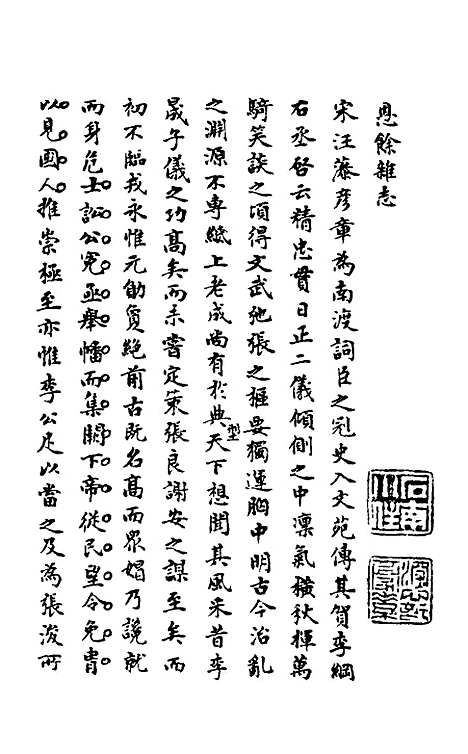 恩餘雜志
宋汪藻彥章為南渡詞臣之冠史入文苑傳其賀李綱
右丞啓云精忠貫日正二儀傾側之中凜氣橫秋揮萬
騎笑談之頃得文武弛張之樞要獨運胸中明古今治亂
之淵源不專紙上老成尚有於典型天下想聞其風采昔李
晟子儀之功高矣而未嘗定策張良謝安之謀至矣而
初不臨戎永惟元勛實絕前古既名高而眾媢乃讒就
而身危士訟公冤亟舉幡而集闕下帝從民望令免冑
以見國人推崇極至亦惟李公足以當之及為張浚所